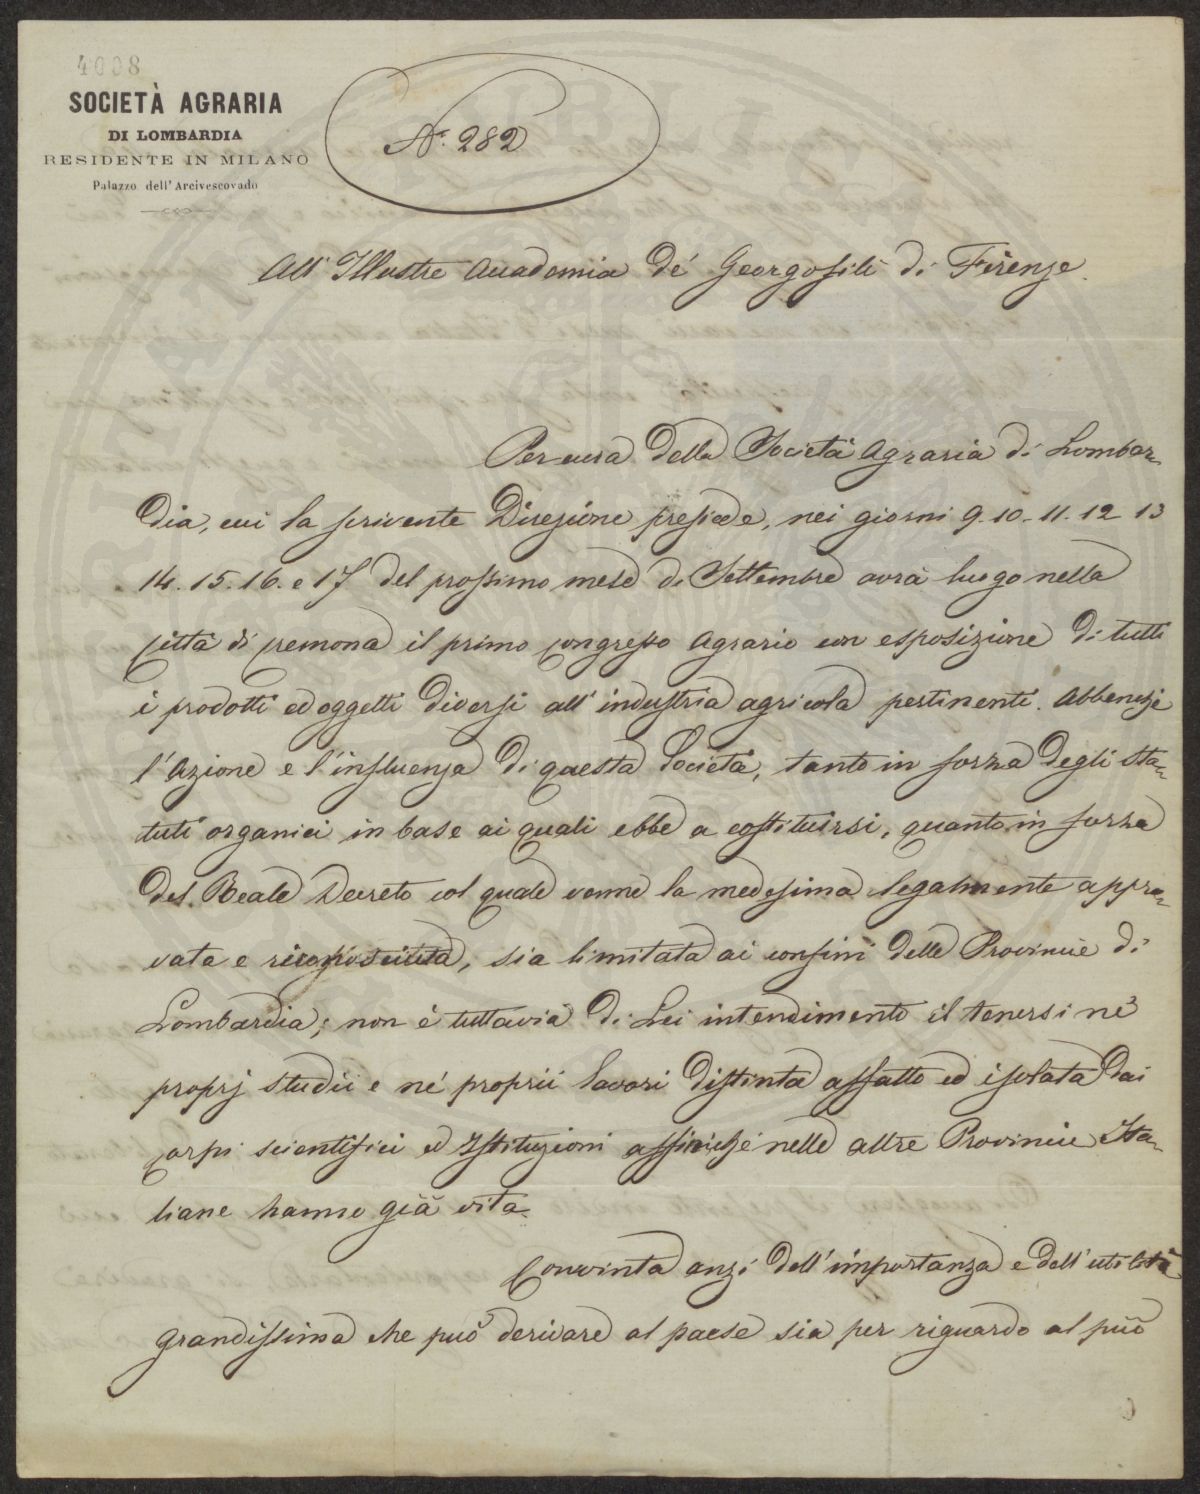 4008
SOCIETÀ AGRARIA
DI LOMBARDIA
RESIDENTE IN MILANO
Palazzo dell'Arcivescovado
N.º 282
All'Illustre Accademia de' Georgofili di Firenze.
Per cura della Società Agraria di Lombar-
dia, cui la scrivente Direzione presiede, nei giorni 9. 10. 11. 12 13
14. 15. 16. e 17 del prossimo mese di Settembre avrà luogo nella
città di Cremona il primo congresso Agrario con esposizione di tutti
i prodotti ed oggetti diversi all'industria agricola pertinenti. Abbenchè
l'Azione e l'influenza di questa Società, tanto in forza degli Sta-
tuti organici in base ai quali ebbe a costituirsi, quanto in forza
del Reale Decreto col quale venne la medesima legalmente appro-
vata e riconosciuta, sia limitata ai confini delle Provincie di
Lombardia; non è tuttavia di Lei intendimento il tenersi ne'
proprj studii e ne' proprii lavori distinta affatto ed isolata dai
corpi scientifici ed Istituzioni affini che nelle altre Provincie Ita-
liane hanno già vita.
Convinta anzi dell'importanza e dell'utilità
grandissima che può derivare al paese sia per riguardo al più